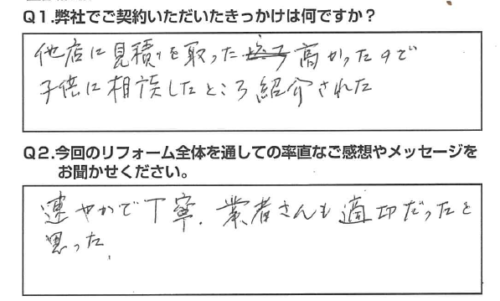 Q1.弊社でご契約いただいたきっかけは何ですか？
他店に見積りを取った 高かったので
子供に相談したところ紹介された
Q2.今回のリフォーム全体を通しての率直なご感想やメッセージを
お聞かせください。
速やかで丁寧、業者さんも適切だったと
思った、